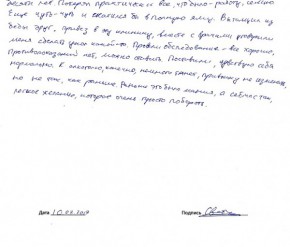 десять лет. Потерял практически все, что было - работу, семью
Еще чуть-чуть и оказался бы в полную яму. Вытащил из
беды друг, привез в эту клинику, вместе с врачами уговорили
меня сделать укол какой-то. Провели обследование - все хорошо,
Противопоказаний нет, можно ставить. Поставили, чувствую себя
нормально. К алкоголю, конечно, немного тянет, привычку не изменить,
но не так, как раньше. Раньше это была мания, а сейчас так,
легкое желание, которое очень просто побороть.
Дата
Подпись